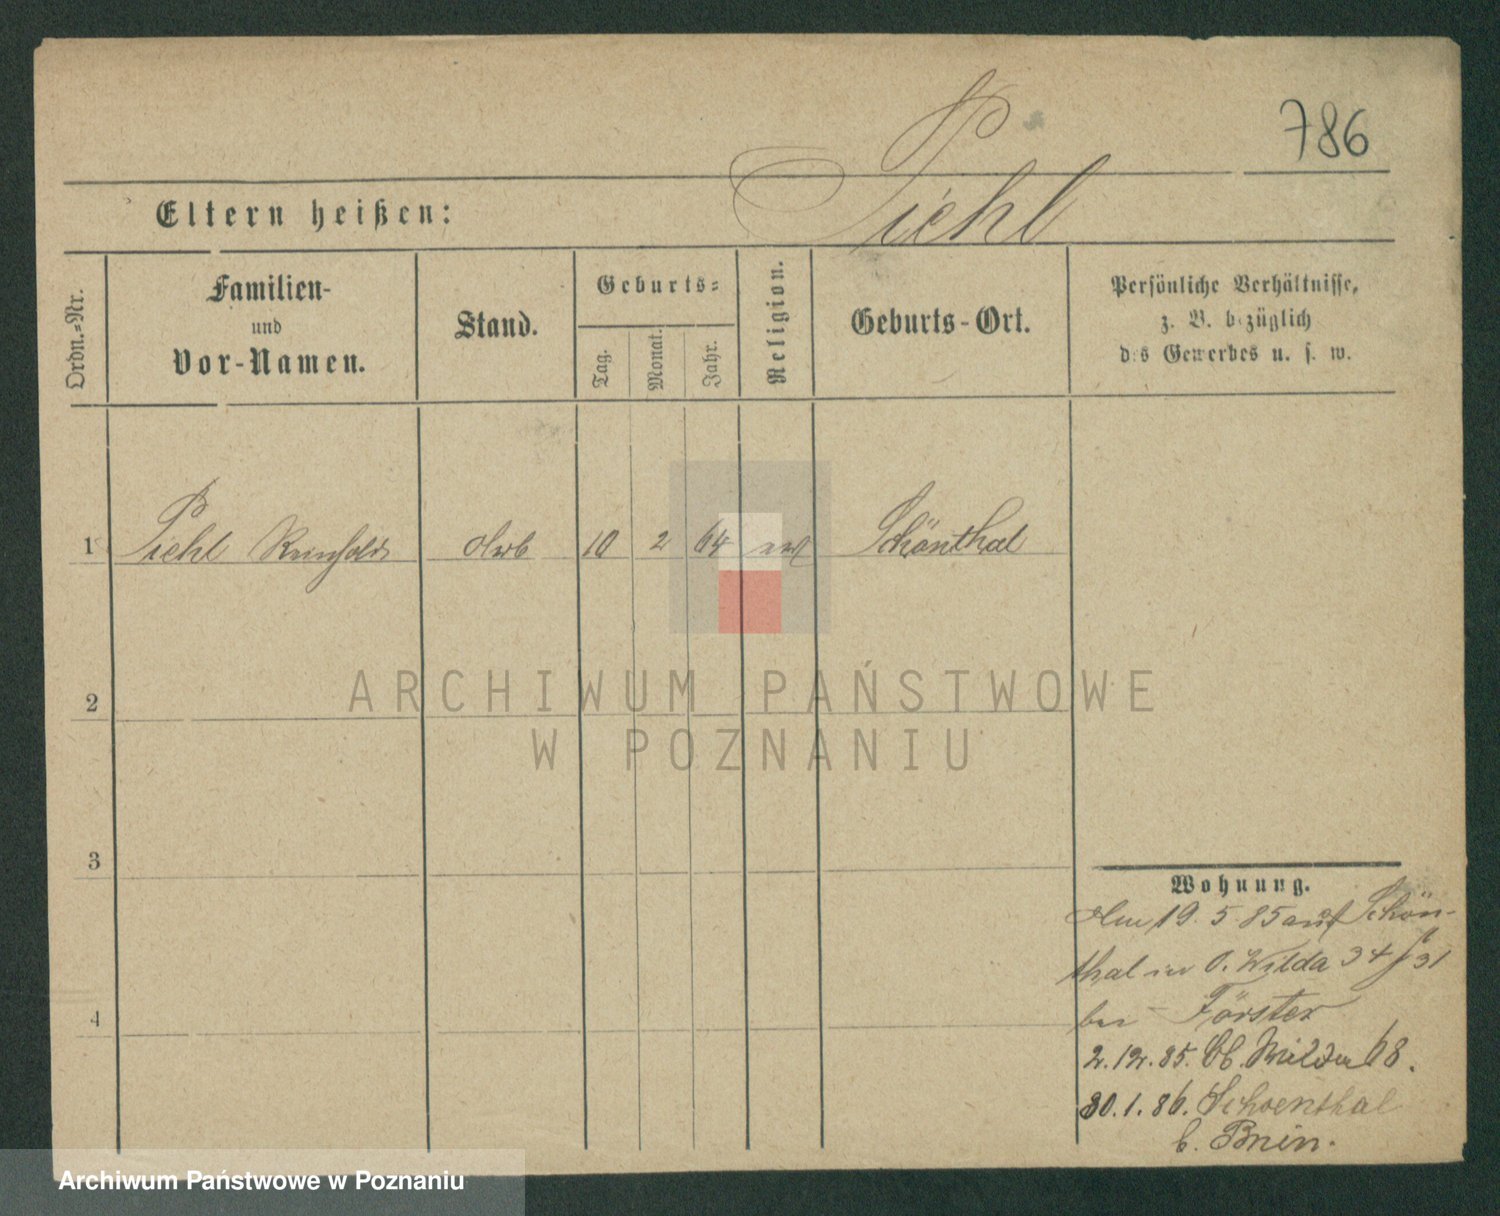 786
Piehl
Eltern heißen:
Ordn.-Nr.
Familien-
und
Vor-Namen.
Stand.
Geburts-
Tag.
Monat.
Jahr.
Religion.
Geburts-Ort.
Persönliche Verhältnisse,
z. B. bezüglich
des Gewerbes u. s. w.
1 Piehl Reinhold 10 2 64 Schönthal
2
3
4
ARCHIWUM PAŃSTWOWE
W POZNANIU
Wohnung.
19.5.85 aus Schön-
thal in O. Wilda 34 31
bei Förster
2.12.85. Ob. Wilda 68.
30.1.86. Schoenthal
b. Bnin.
Archiwum Państwowe w Poznaniu